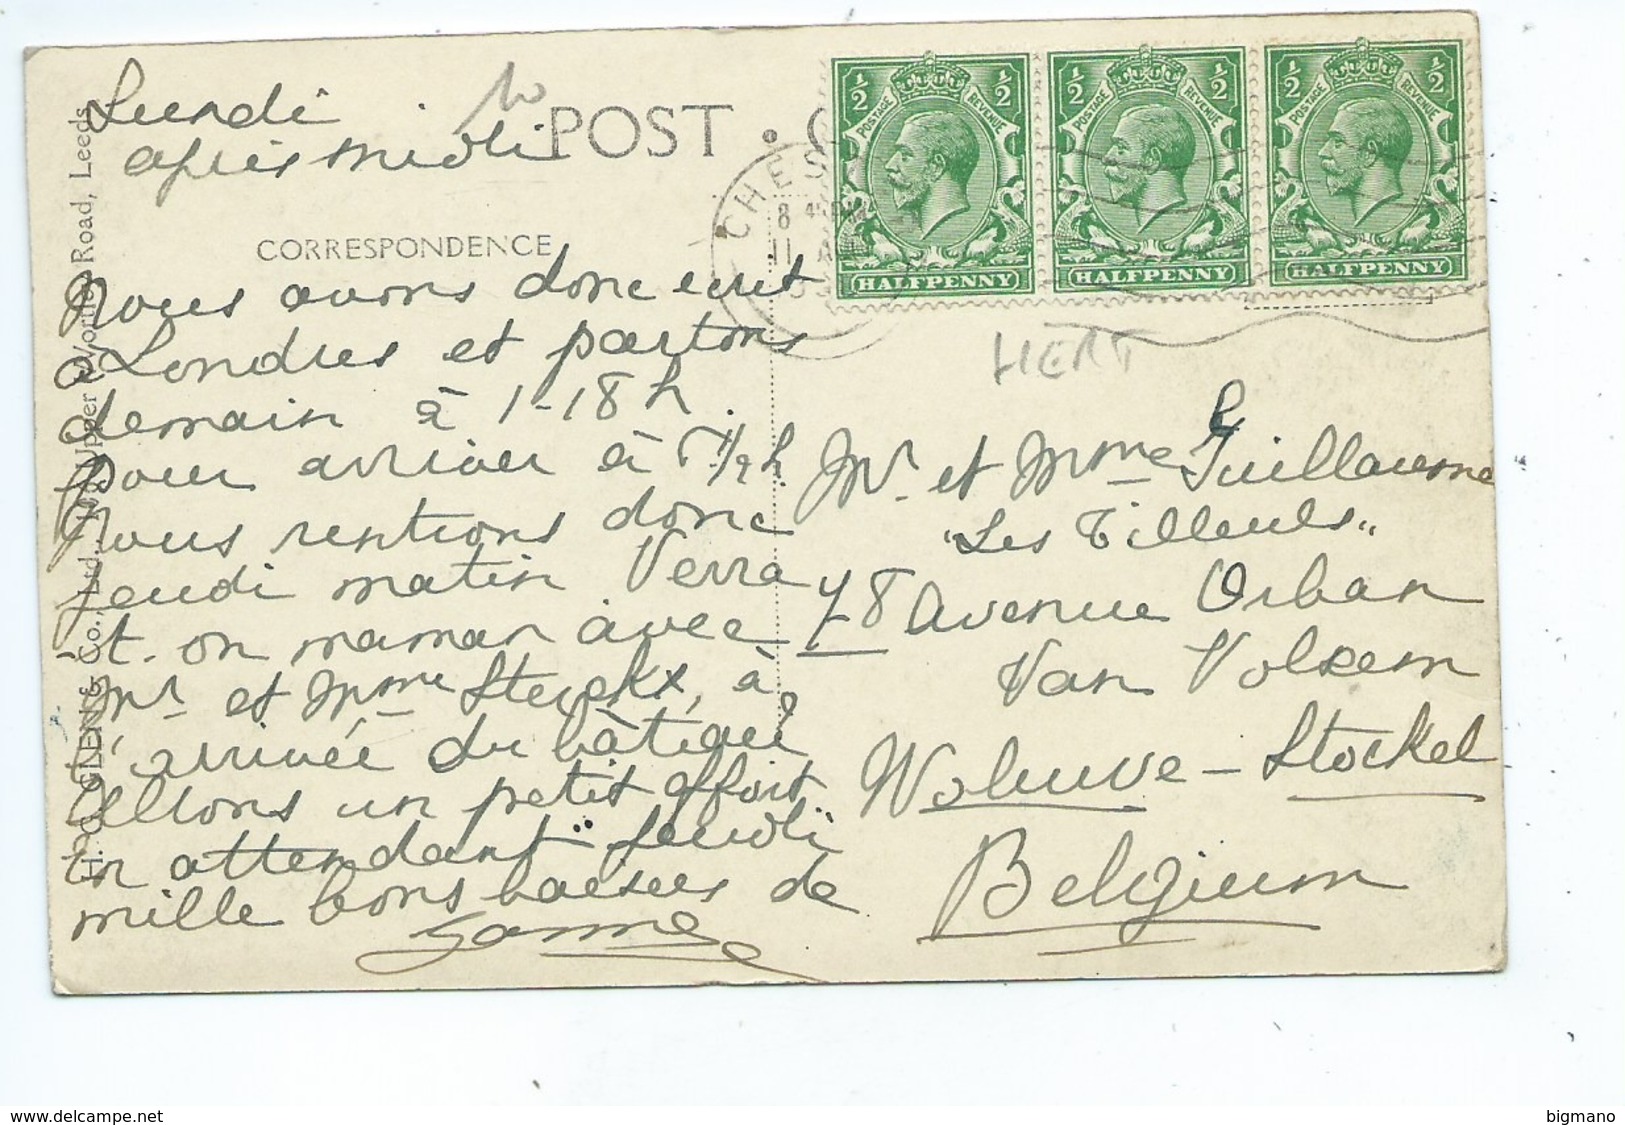 Lundi
après midi
POST
CORRESPONDENCE
Nous avons donc
à Londres et partons
demain à 1-18 h.
pour arriver à 5 1/2 h.
Nous rentrons donc
jeudi matin Verra
t. on maman avec
Mr et Mme Sterckx, à
l'arrivée du bâteau?
Allons un petit effort
en attendant jeudi
mille bons baisers de
H. Ltd., Upper Wortley Road, Leeds
CHES
8 45 PM
11
POSTAGE REVENUE
½ ½
HALFPENNY
POSTAGE REVENUE
½ ½
HALFPENNY
POSTAGE REVENUE
½ ½
HALFPENNY
HERT
Mr et Mme Guillaume
"Les Tilleuls"
78 Avenue Orban
Van Volxem
Woluwe - Stockel
Belgium
www.delcampe.net
bigmano